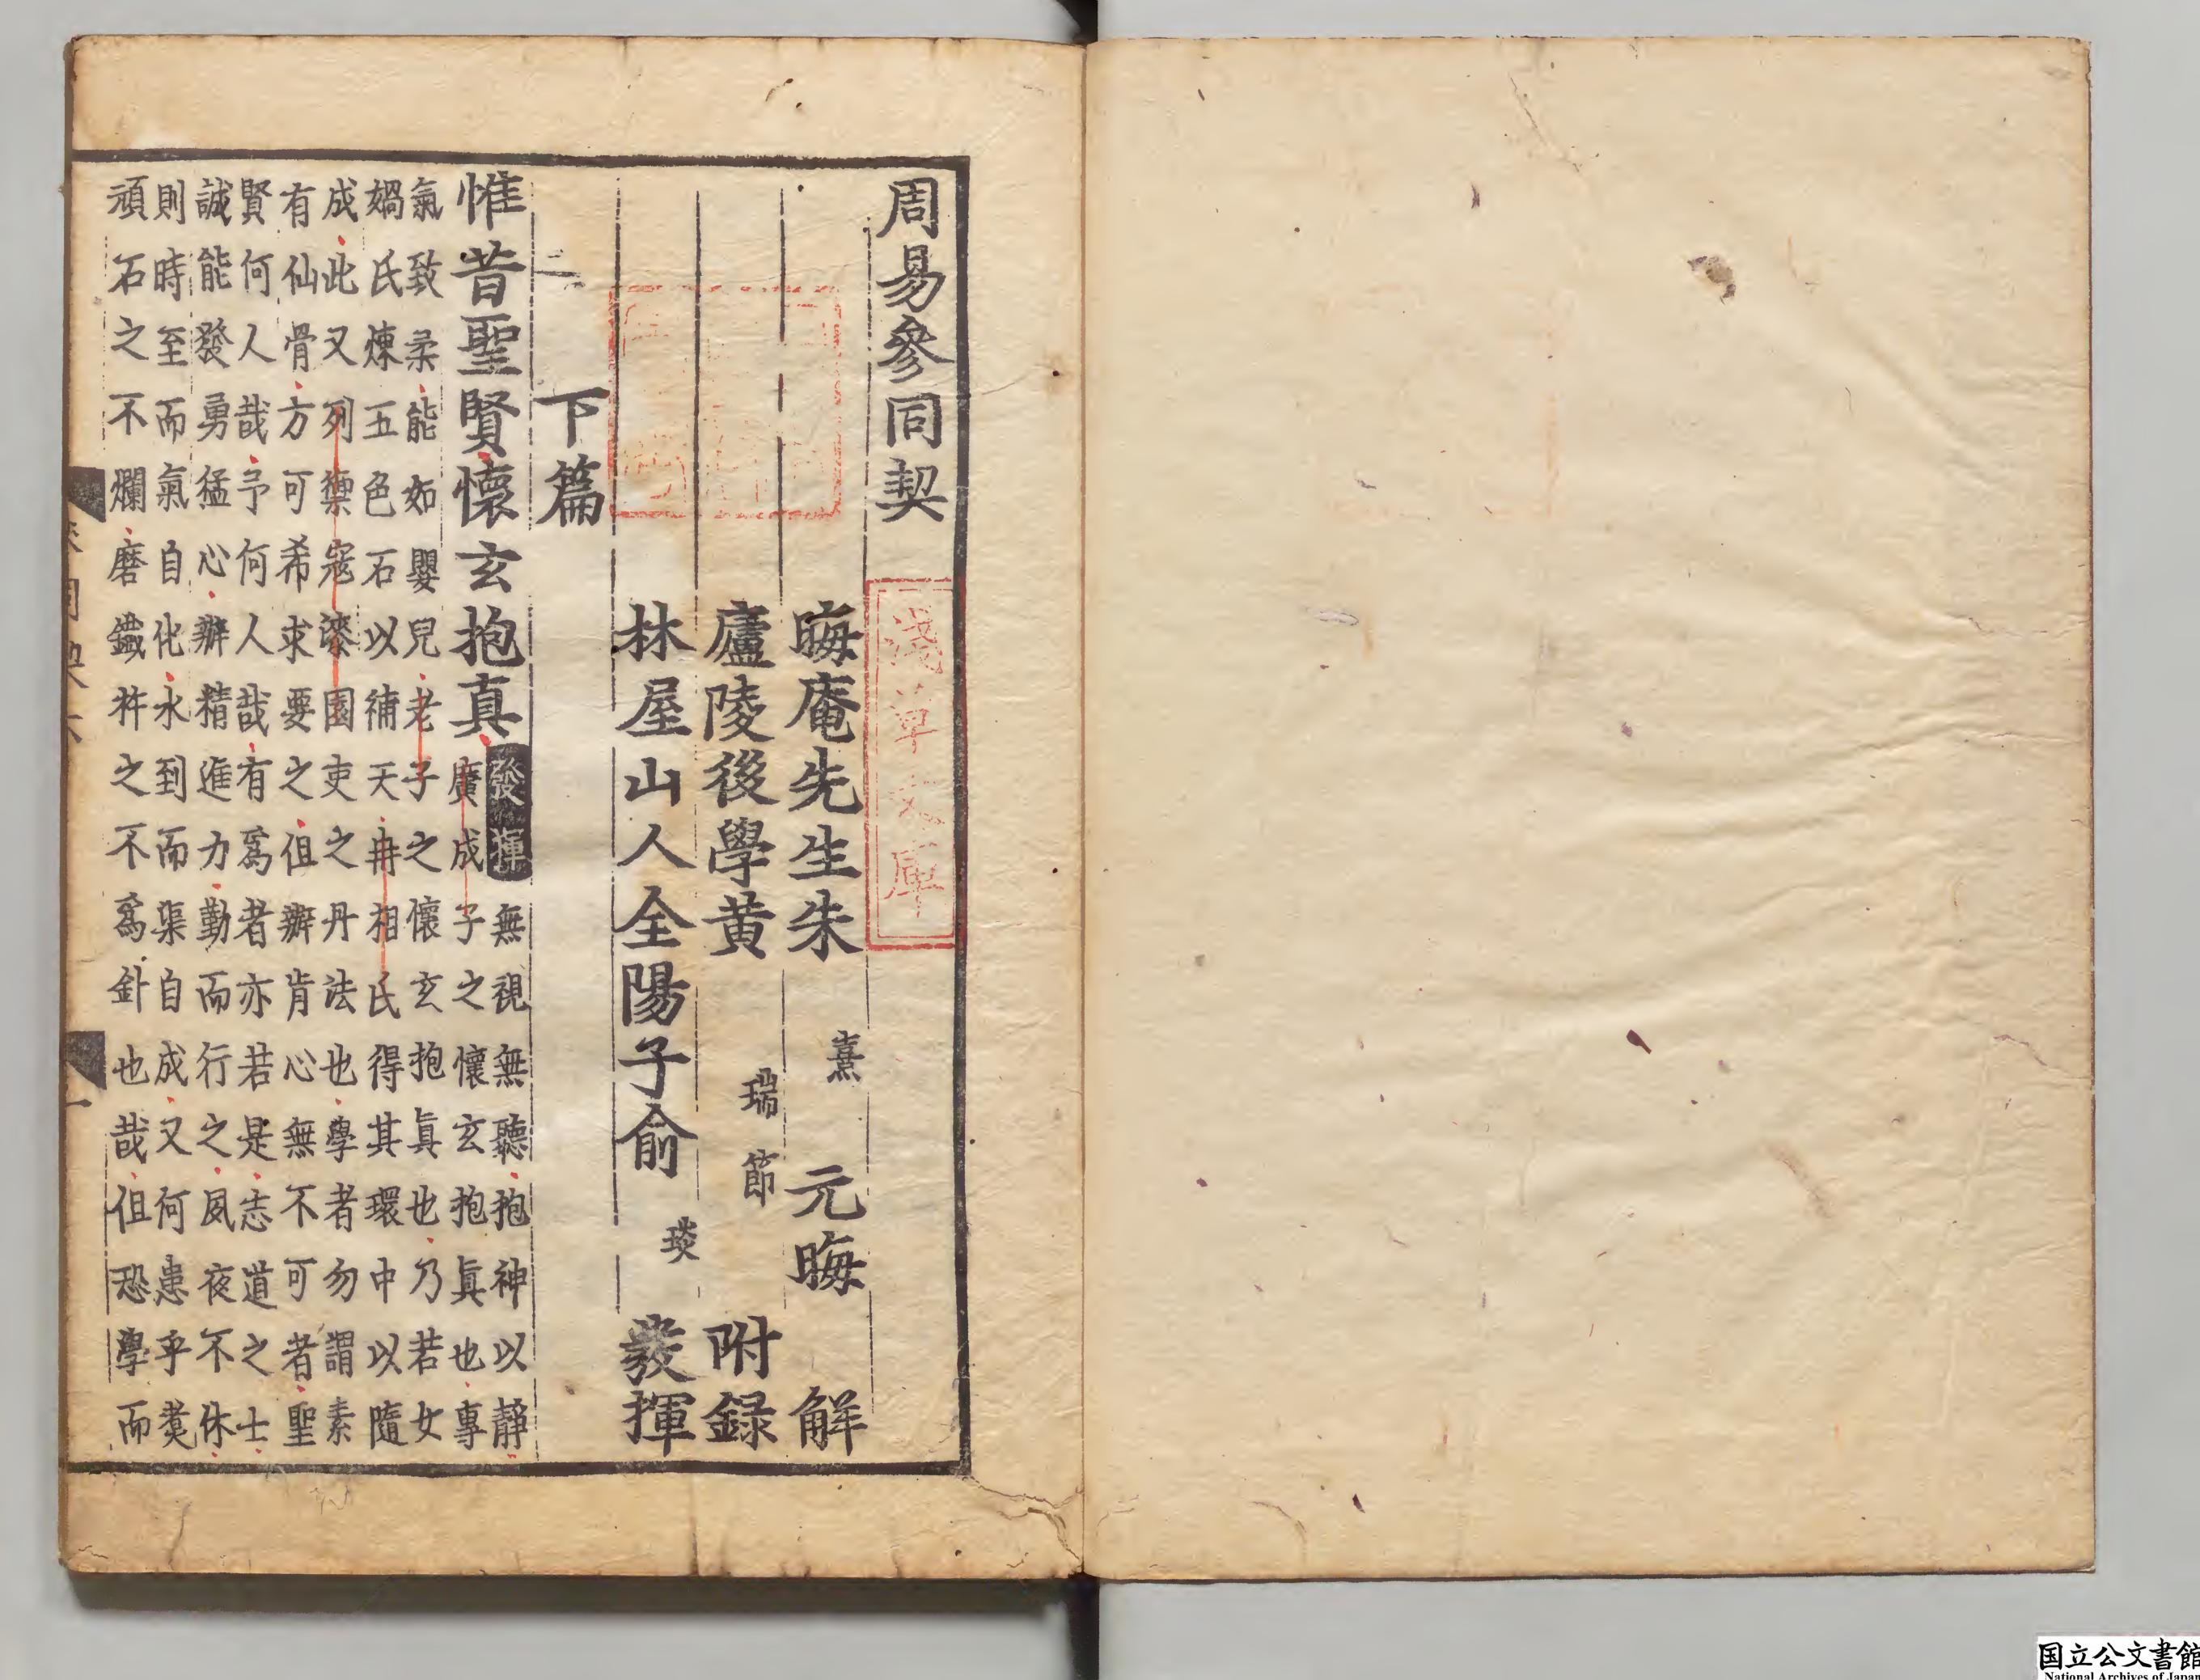 周易參同契
晦庵先生朱 熹 元晦 解
廬陵後學黄 瑞節 附録
林屋山人全陽子俞 琰 發揮
下篇
惟昔聖賢懷玄抱真
發揮 無視無聽抱神以靜
廣成子之懷玄抱眞也專
氣致柔能如嬰兒老子之懷玄抱眞也乃若女
媧氏煉五色石以補天冉相氏得其環中以隨
成此又列禦寇漆園吏之丹法也學者勿謂素
有仙骨方可希求要之但辦肯心無不可者聖
賢何人哉予何人哉有爲者亦若是志道之士
誠能發勇猛心辦精進力勤而行之夙夜不休
則時至而氣自化水到而渠自成又何患乎煑
頑石之不爛磨鐵杵之不爲針也哉但恐學而
淺草文庫
国立公文書館
National Archives of Japan